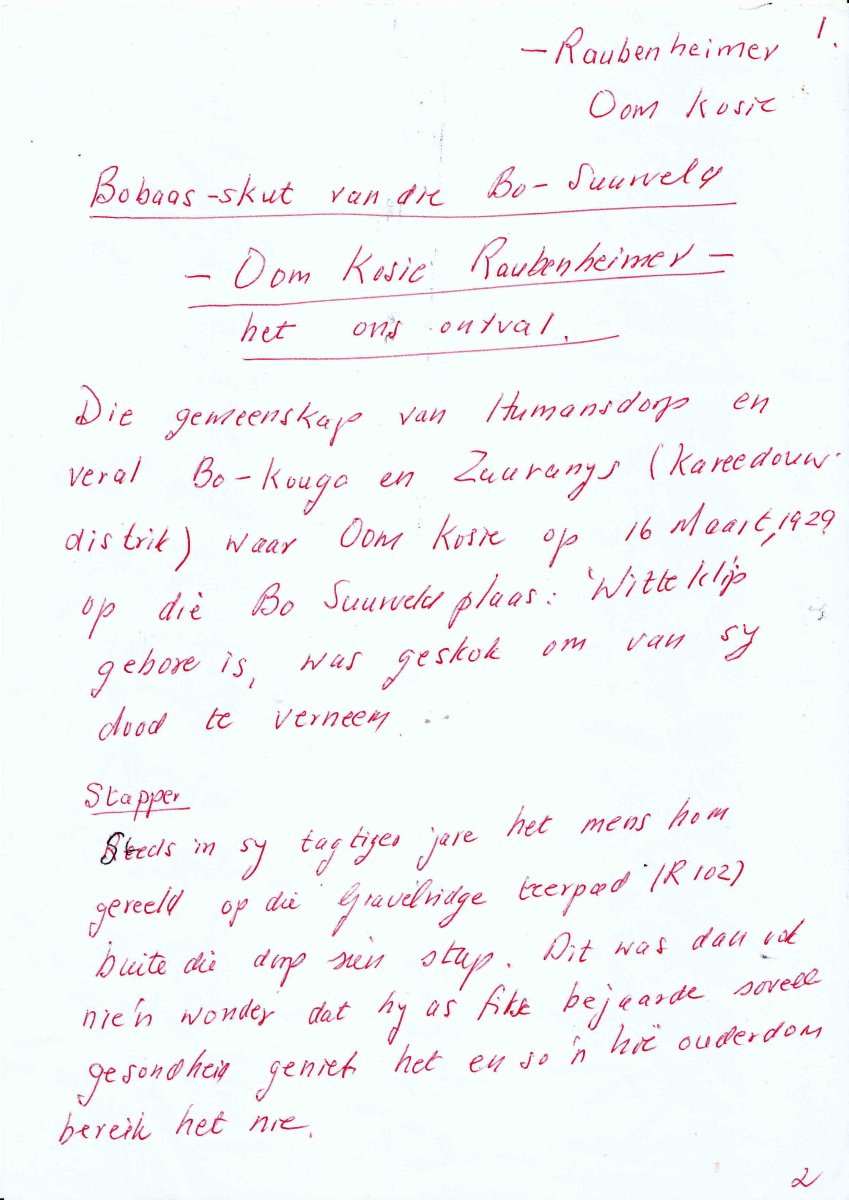 1.
– Raubenheimer
Oom Kosie
Bobaas-skut van die Bo-Suurveld
– Oom Kosie Raubenheimer –
het ons ontval.
Die gemeenskap van Humansdorp en
veral Bo-Kouga en Zuuranys (Kareedouw-
distrik) waar Oom Kosie op 16 Maart, 1929
op die Bo Suurveld plaas: 'Witteklip
gebore is, was geskok om van sy
dood te verneem ..
Stapper
Steeds in sy tagtiger jare het mens hom
gereeld op die Gravelridge teerpad (R102)
buite die dorp sien stap. Dit was dan ook
nie 'n wonder dat hy as fikse bejaarde soveel
gesondheid geniet het en so 'n hoë ouderdom
bereik het nie.
2